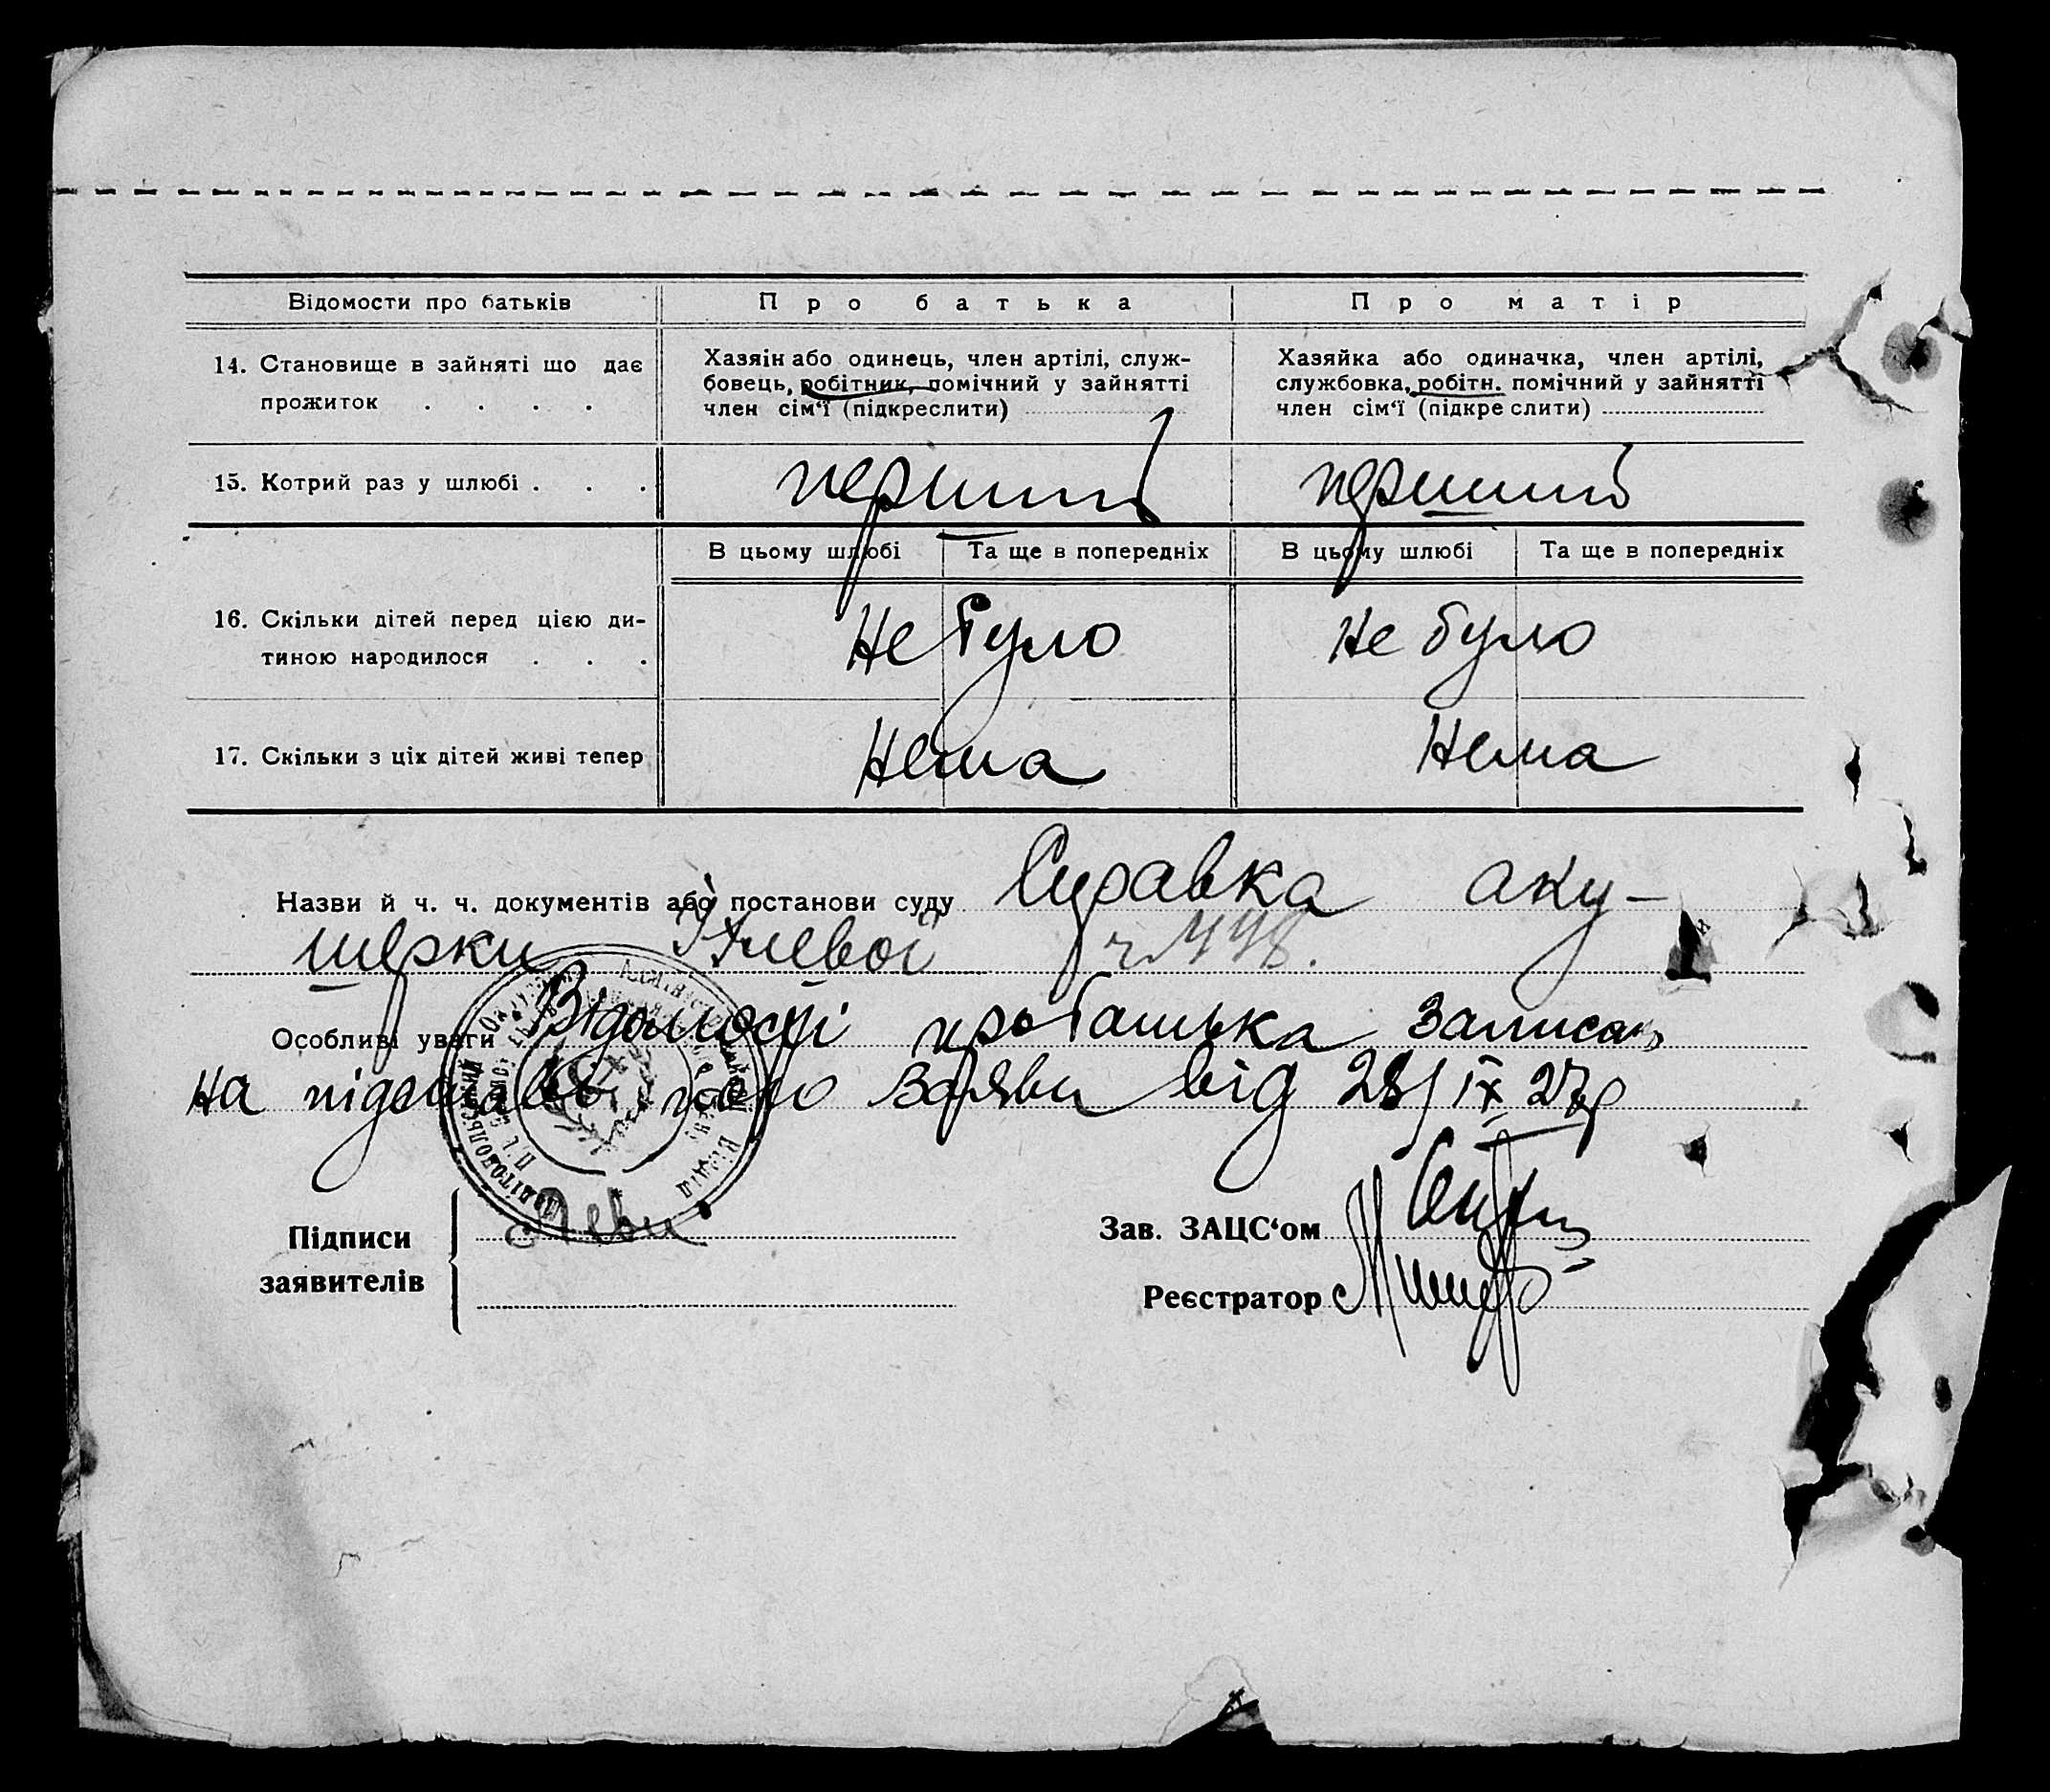 Відомости про батьків
Про батька
Про матір
14. Становище в зайняті що дає
прожиток . . . .
Хазяін або одинець, член артілі, служ-
бовець, робітник, помічний у зайнятті
член сім'ї (підкреслити)
Хазяйка або одиначка, член артілі,
службовка, робітн. помічний у зайнятті
член сім'ї (підкреслити)
15. Котрий раз у шлюбі . . .
перший
перший
В цьому шлюбі
Та ще в попередніх
В цьому шлюбі
Та ще в попередніх
16. Скільки дітей перед цією ди-
тиною народилося . . .
Не було
Не було
17. Скільки з ціх дітей живі тепер
Нема
Нема
Назви й ч. ч. документів або постанови суду Справка аку-
шерки ч 448.
Особливі уваги Відомості про батька записа
на підставі його заяви від 28/IX 27р
Підписи
заявителів
Зав. ЗАЦС'ом
Реєстратор